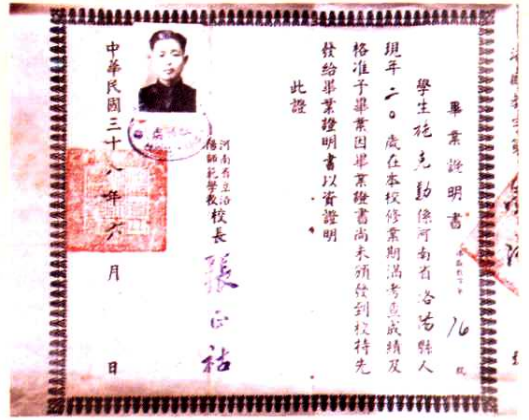 畢業證明書
76
學生施克勤係河南省洛陽縣人
現年二〇歲在本校修業期滿考查成績及
格准予畢業因畢業證書尚未頒發到校特先
發給畢業證明書以資證明
此證
河南省立洛
陽師範學校
校長
張正祜
中華民國三十八年六月 日